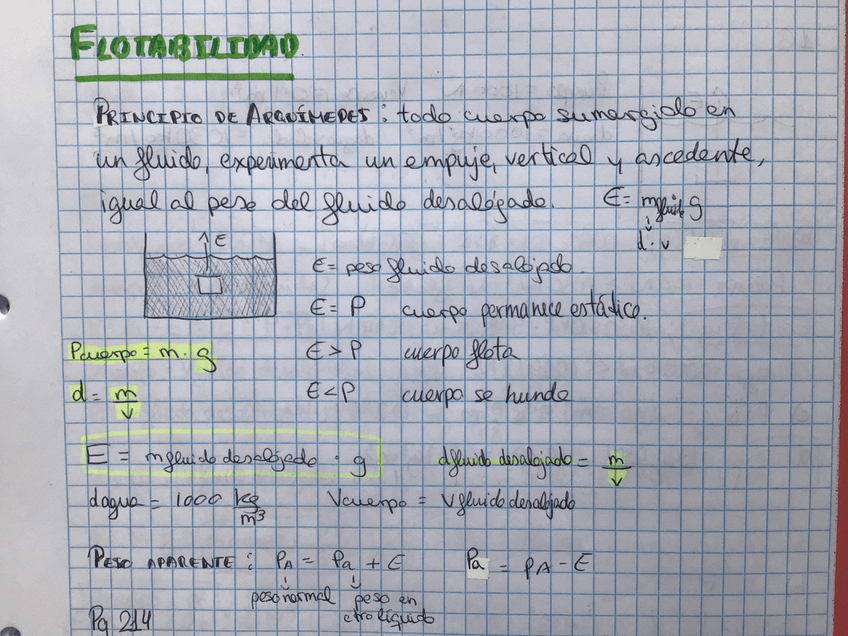 FLOTABILIDAD
PRINCIPIO DE ARQUÍMEDES: todo cuerpo sumergido en
un fluido, experimenta un empuje, vertical y ascedente,
igual al peso del fluido desalójado. E = m fluido g
d · v
E
E = peso fluido desalojado.
E = P cuerpo permanece estático.
Pcuerpo = m · g E > P cuerpo flota
d = m/v E < P cuerpo se hunde
E = m fluido desalójado · g d fluido desalojado = m/v
dagua = 1000 kg/m³ Vcuerpo = V fluido desalojado
PESO APARENTE: PA = Pa + E Pa = PA - E
peso normal peso en
otro líquido
Pg 214